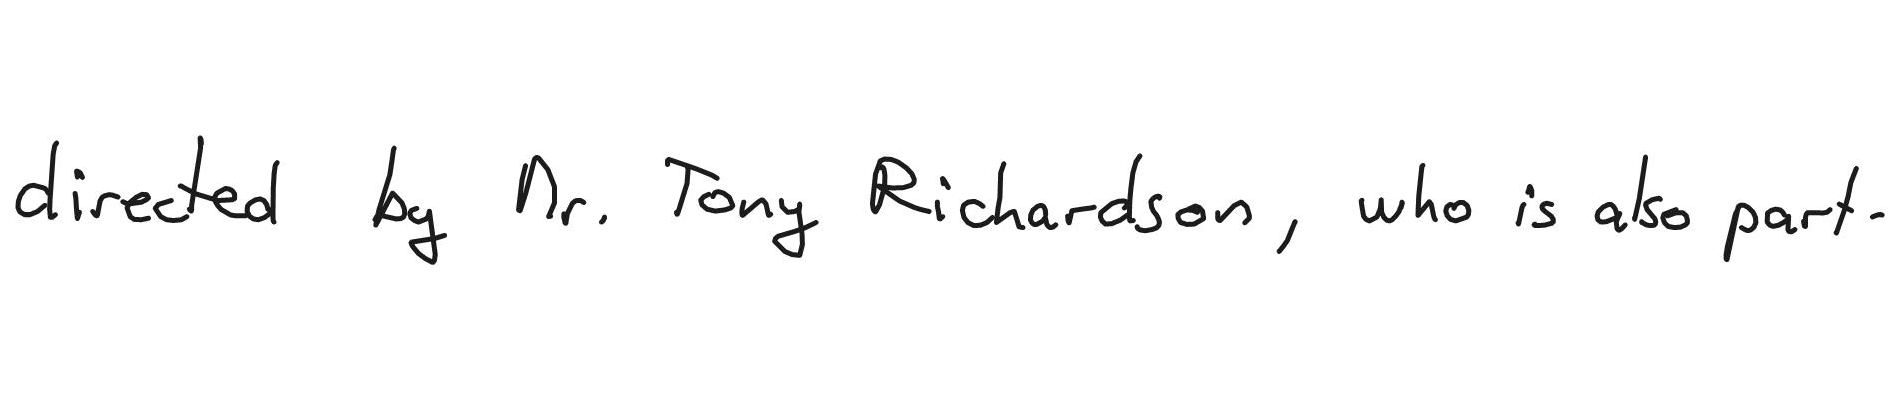 directed by Dr. Tony Richardson, who is also part-